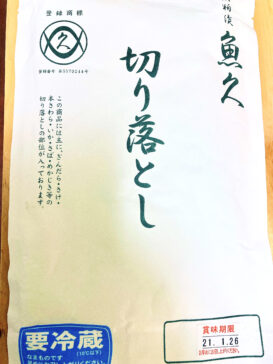 粕漬
魚久
登録商標
久
登録番号 第5570244号
切り落とし
この商品には主に、ぎんだら・さけ・
本さわら・いか・さば・めかじき等の
切り落としの部位が入っております。
要冷蔵
(10℃以下)
なまものです
賞味期限
21.1.26